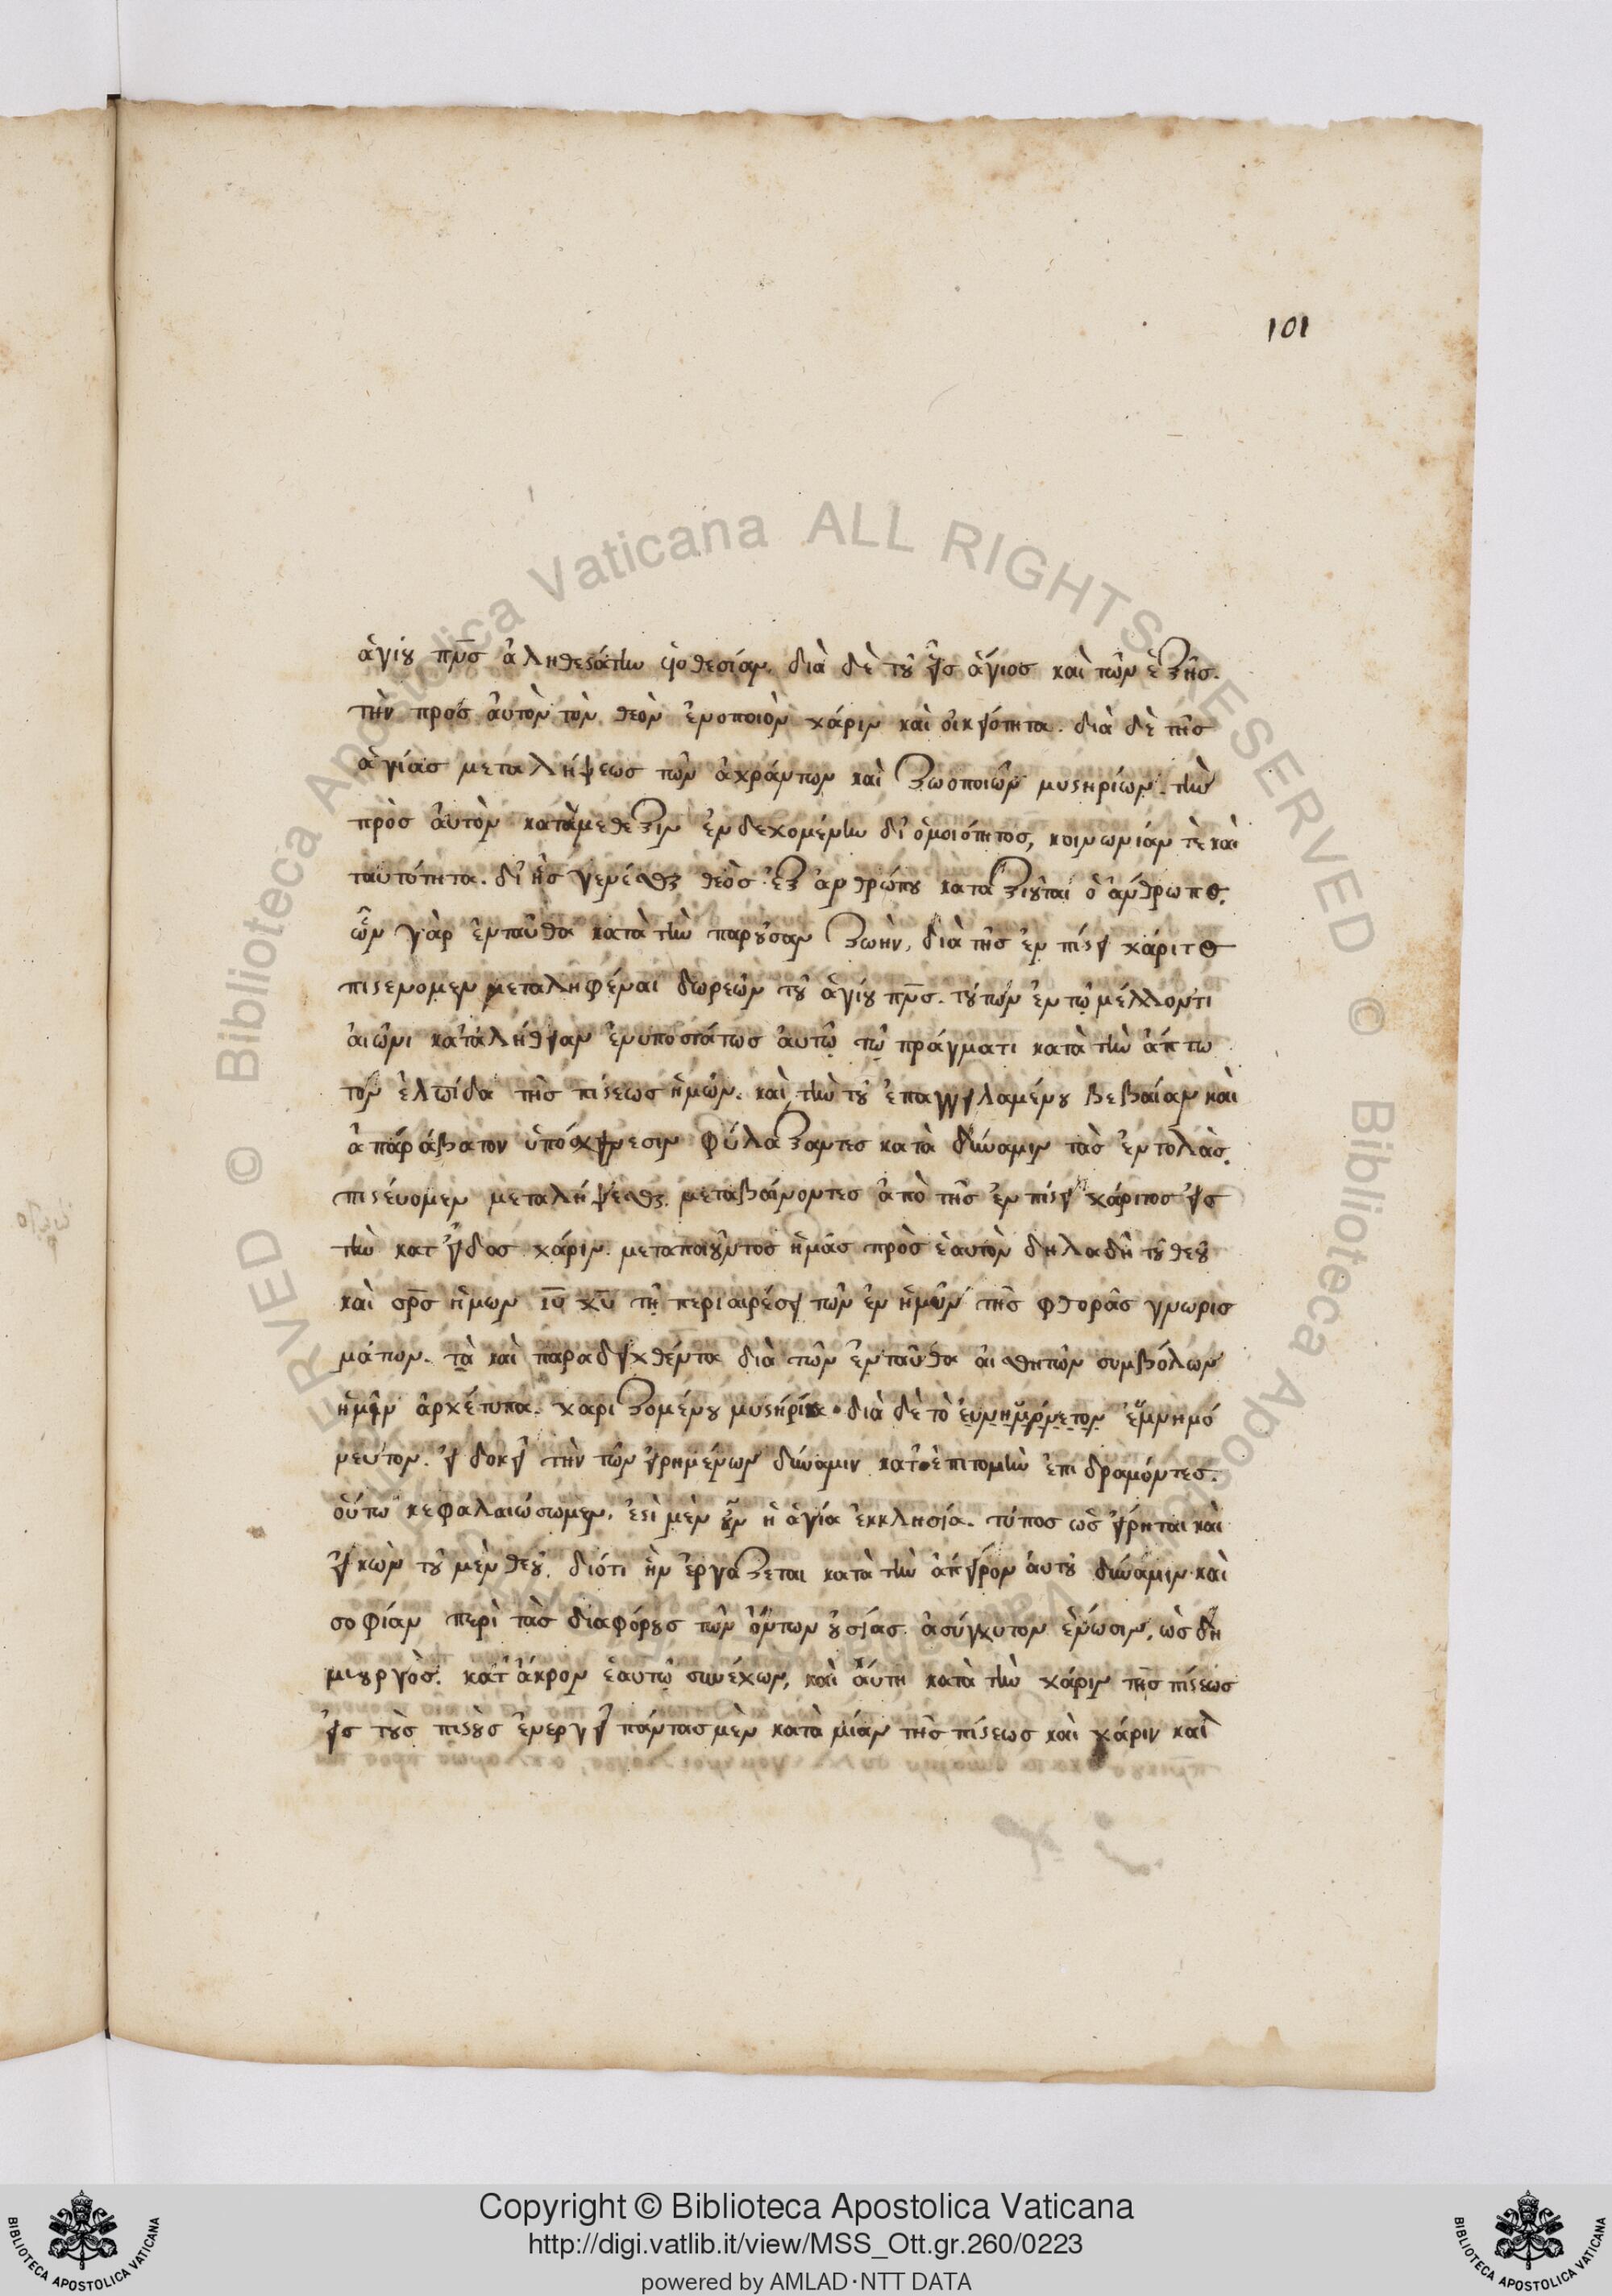 101
ἁγίου πν̅ς ἀληθεστάτην υἱοθεσίαν. διὰ δὲ τοῦ εἷς ἅγιος καὶ τῶν ἑξῆς.
τὴν πρὸς ἀυτὸν τὸν θεὸν ἑνοποιὸν χάριν καὶ οἰκειότητα. διὰ δὲ τῆς
ἁγίας μεταλήψεως τῶν ἀχράντων καὶ ζωοποιῶν μυστηρίων. τὴν
πρὸς ἀυτὸν κατὰ μέθεξιν ἐνδεχομένην δι' ὁμοιότητος, κοινωνίαν τὲ καὶ
ταυτότητα. δι' ἧς γενέσθαι θεὸς ἐξ ἀνθρώπου καταξιοῦται ὁ ἄνθρωπος.
ὧν γὰρ ἐνταῦθα κατὰ τὴν παροῦσαν ζωὴν, διὰ τῆς ἐν πίστει χάριτος
πιστεύομεν μεταληφέναι δωρεῶν τοῦ ἁγίου πν̅ς. τούτων ἐν τῷ μέλλοντι
ἀιῶνι κατὰ λήθειαν ἐνυποστάτως ἀυτῷ τῷ πράγματι κατὰ τὴν ἄπτω
τον ἐλπίδα τῆς πίστεως ἡμῶν. καὶ τὴν τοῦ ἐπαγγειλαμένου βεβαίαν καὶ
ἀπαράβατον ὑπόσχεσιν φύλαξαντες κατὰ δύναμιν τὰς ἐντολὰς.
πιστεύομεν μεταλήψεσθαι. μεταβαίνοντες ἀπὸ τῆς ἐν πίστει χάριτος εἰς
τὴν κατ' εἶδος χάριν. μεταποιοῦντος ἡμᾶς πρὸς ἑαυτὸν δηλαδὴ τοῦ θεοῦ
καὶ σρ̅ς ἡμων ιυ̅ χυ̅ τῇ περιαιρέσει τῶν ἐν ἡμῖν τῆς φθορᾶς γνωρισ
μάτων. τὰ καὶ παραδειχθέντα διὰ τῶν ἐνταῦθα αἰσθητῶν συμβόλων
ἡμῖν ἀρχέτυπα. χαριζομένου μυστήρια. διὰ δὲ τὸ ἐυμνημόνετον ἐυμνημό
νευτον. εἰ δοκεῖ τὴν τῶν εἰρημένων δύναμιν κατ' ἐπιτομὴν ἐπιδραμόντες.
οὕτω κεφαλαιώσωμεν. ἐστὶ μὲν οὖν ἡ ἁγία ἐκκλησία. τύπος ὡς εἴρηται καὶ
εἰκὼν τοῦ μὲν θεοῦ. διότι ἣν ἐργάζεται κατὰ τὴν ἄπειρον ἀυτοῦ δύναμιν καὶ
σοφίαν περὶ τὰς διαφόρους τῶν ὄντων οὐσίας ἀσύγχυτον ἑνωσιν, ὡς δη
μιουργὸς. κατ' ἄκρον ἑαυτῷ συνέχων, καὶ ἅυτη κατὰ τὴν χάριν τῆς πίστεως
εἰς τοὺς πιστοὺς ἐνεργεῖ πάντας μὲν κατὰ μίαν τῆς πίστεως καὶ χάριν καὶ
Copyright © Biblioteca Apostolica Vaticana
http://digi.vatlib.it/view/MSS_Ott.gr.260/0223
powered by AMLAD·NTT DATA